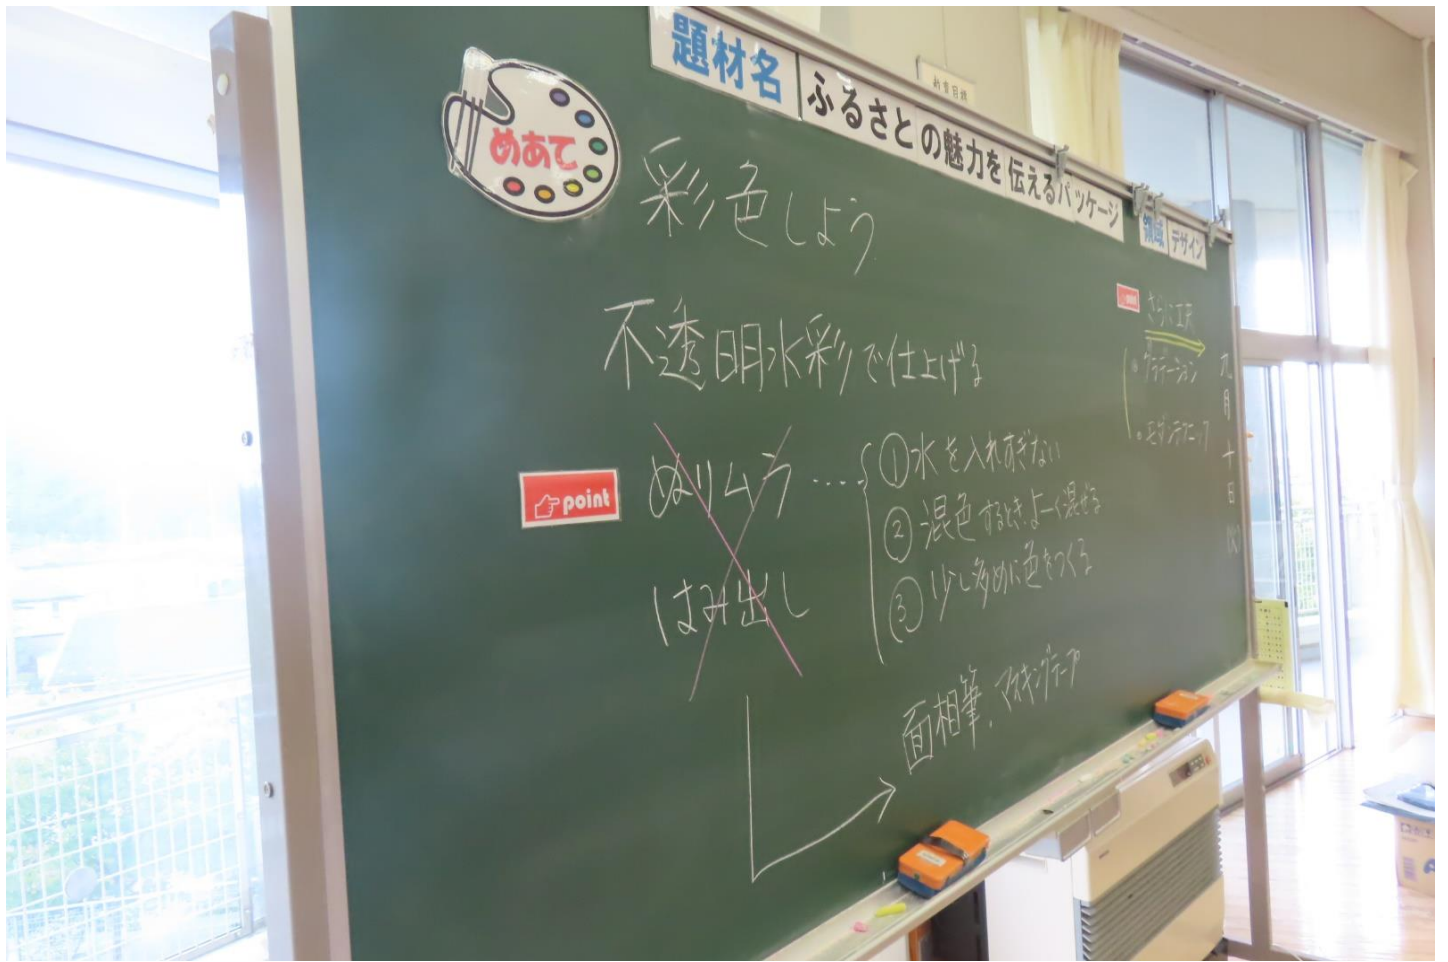 題材名 ふるさとの魅力を伝えるパッケージ
領域 デザイン
めあて
彩色しよう
不透明水彩で仕上げる
point
ぬりムラ
はみ出し
①水を入れすぎない
②混色するとき、よーく混ぜる
③少し多めに色をつくる
面相筆、マスキングテープ
point
さらに工夫
・グラデーション
・モダンテクニック
九月十日